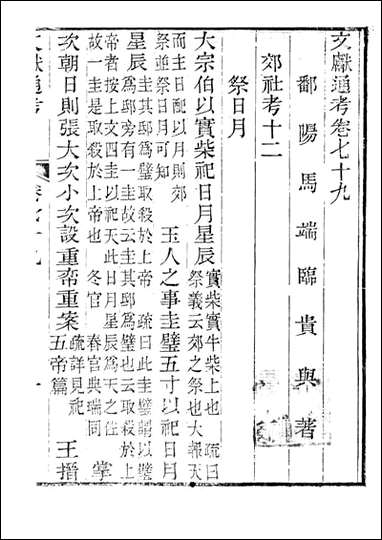 文獻通考卷七十九
鄱陽馬端臨貴與著
郊社考十二
祭日月
大宗伯以實柴祀日月星辰實柴實牛柴上也 疏曰
祭義云郊之祭也大報天
而主日配以月則郊
祭並祭日月可知 玉人之事圭璧五寸以祀日月
星辰圭其邸為璧取殺於上帝 疏曰此圭璧謂以璧
為邸旁有一圭故云圭其邸為璧也云取殺於上
帝者按上文四圭以祀天此日月星辰為天之佐
故一圭是取殺於上帝也 冬官 春官典瑞同 掌
次朝日則張大次小次設重帟重案疏詳見祀
五帝篇 王搢